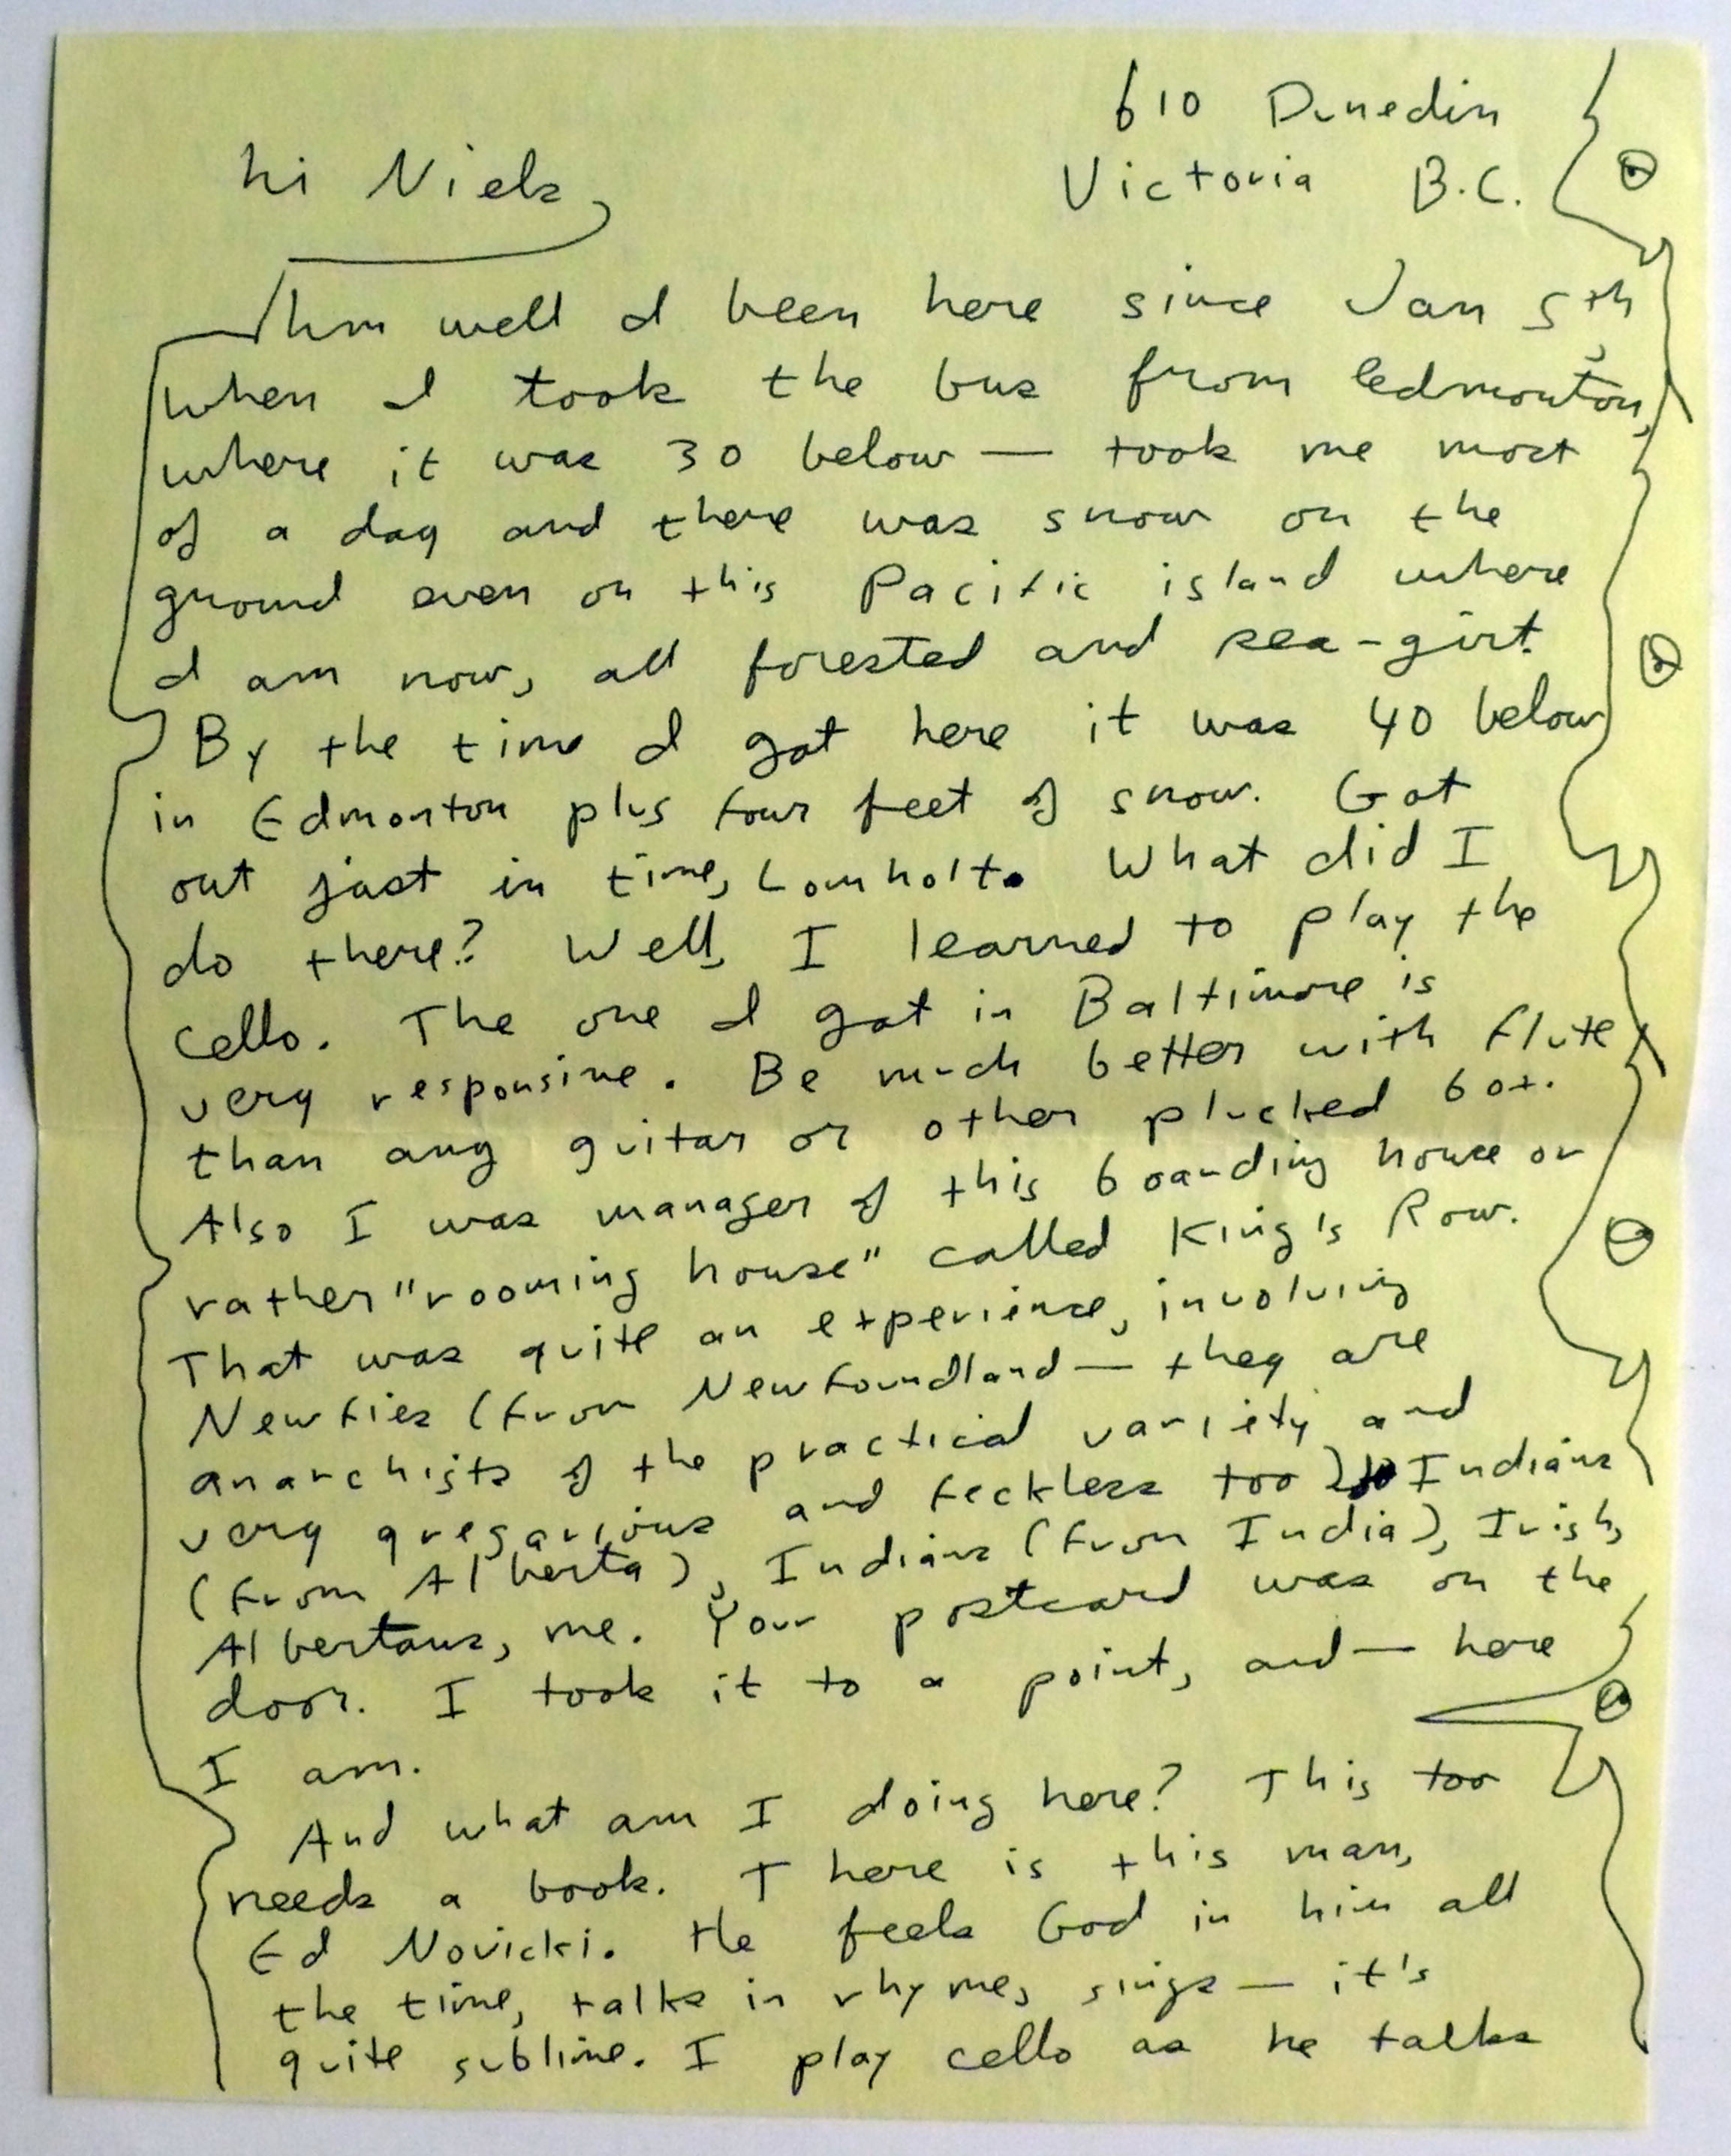 610 Dunedin
Victoria B.C.
hi Niels,
hm well I been here since Jan 5th,
when I took the bus from Edmonton,
where it was 30 below — took me most
of a day and there was snow on the
ground even on this Pacific island where
I am now, all forested and sea-girt.
By the time I got here it was 40 below
in Edmonton plus four feet of snow. Got
out just in time, Lomholt. What did I
do there? Well, I learned to play the
cello. The one I got in Baltimore is
very responsive. Be much better with flute
than any guitar or other plucked box.
Also I was manager of this boarding house or
rather "rooming house" called King's Row.
That was quite an experience, involving
Newfies (from Newfoundland — they are
anarchists of the practical variety and
very gregarious and feckless too) Indians
(from Alberta), Indians (from India), Irish,
Albertans, me. Your postcard was on the
door. I took it to a point, and — here
I am.
And what am I doing here? This too
needs a book. There is this man,
Ed Novicki. He feels God in him all
the time, talks in rhyme, sings — it's
quite sublime. I play cello as he talks